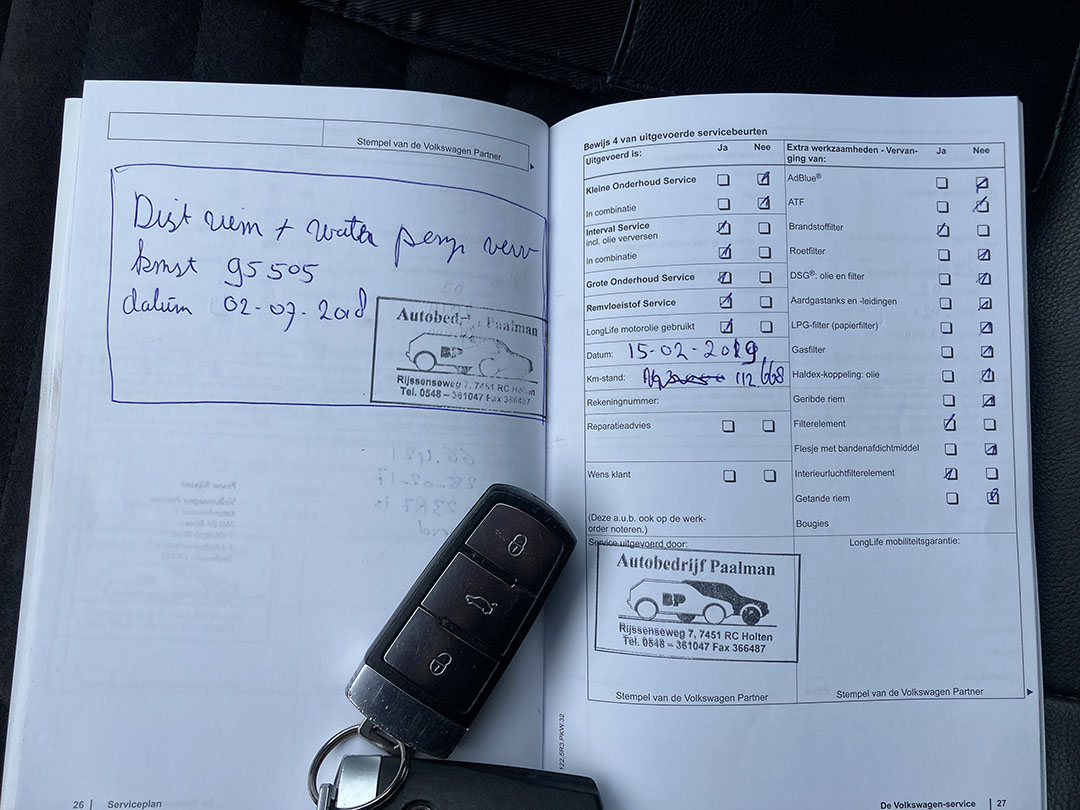 Stempel van de Volkswagen Partner
Dist riem + water pomp verv
kmst 95505
datum 02-07-2018
Autobedrijf Paalman
BP
Rijssenseweg 7, 7451 RC Holten
Tel. 0548 – 361047 Fax 366487
26 | Serviceplan
Bewijs 4 van uitgevoerde servicebeurten
Uitgevoerd is: Ja Nee
Kleine Onderhoud Service
In combinatie
Interval Service
incl. olie verversen
In combinatie
Grote Onderhoud Service
Remvloeistof Service
LongLife motorolie gebruikt
Datum: 15-02-2019
Km-stand: 112 668
Rekeningnummer:
Reparatieadvies
Wens klant
(Deze a.u.b. ook op de werk-
order noteren.)
Service uitgevoerd door:
Autobedrijf Paalman
BP
Rijssenseweg 7, 7451 RC Holten
Tel. 0548 – 361047 Fax 366487
Stempel van de Volkswagen Partner
Extra werkzaamheden - Vervan-
ging van: Ja Nee
AdBlue®
ATF
Brandstoffilter
Roetfilter
DSG®: olie en filter
Aardgastanks en -leidingen
LPG-filter (papierfilter)
Gasfilter
Haldex-koppeling: olie
Geribde riem
Filterelement
Flesje met bandenafdichtmiddel
Interieurluchtfilterelement
Getande riem
Bougies
LongLife mobiliteitsgarantie:
Stempel van de Volkswagen Partner
122.5R3.PKW.32
De Volkswagen-service | 27